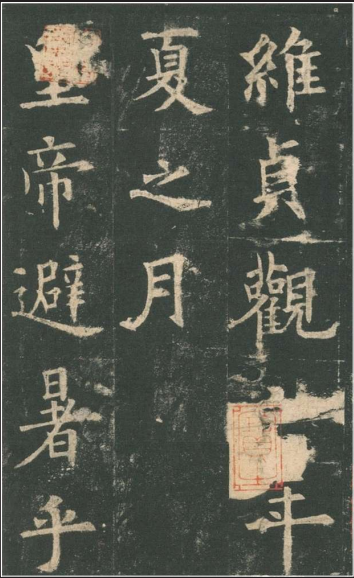 維貞觀年
夏之月
皇帝避暑乎